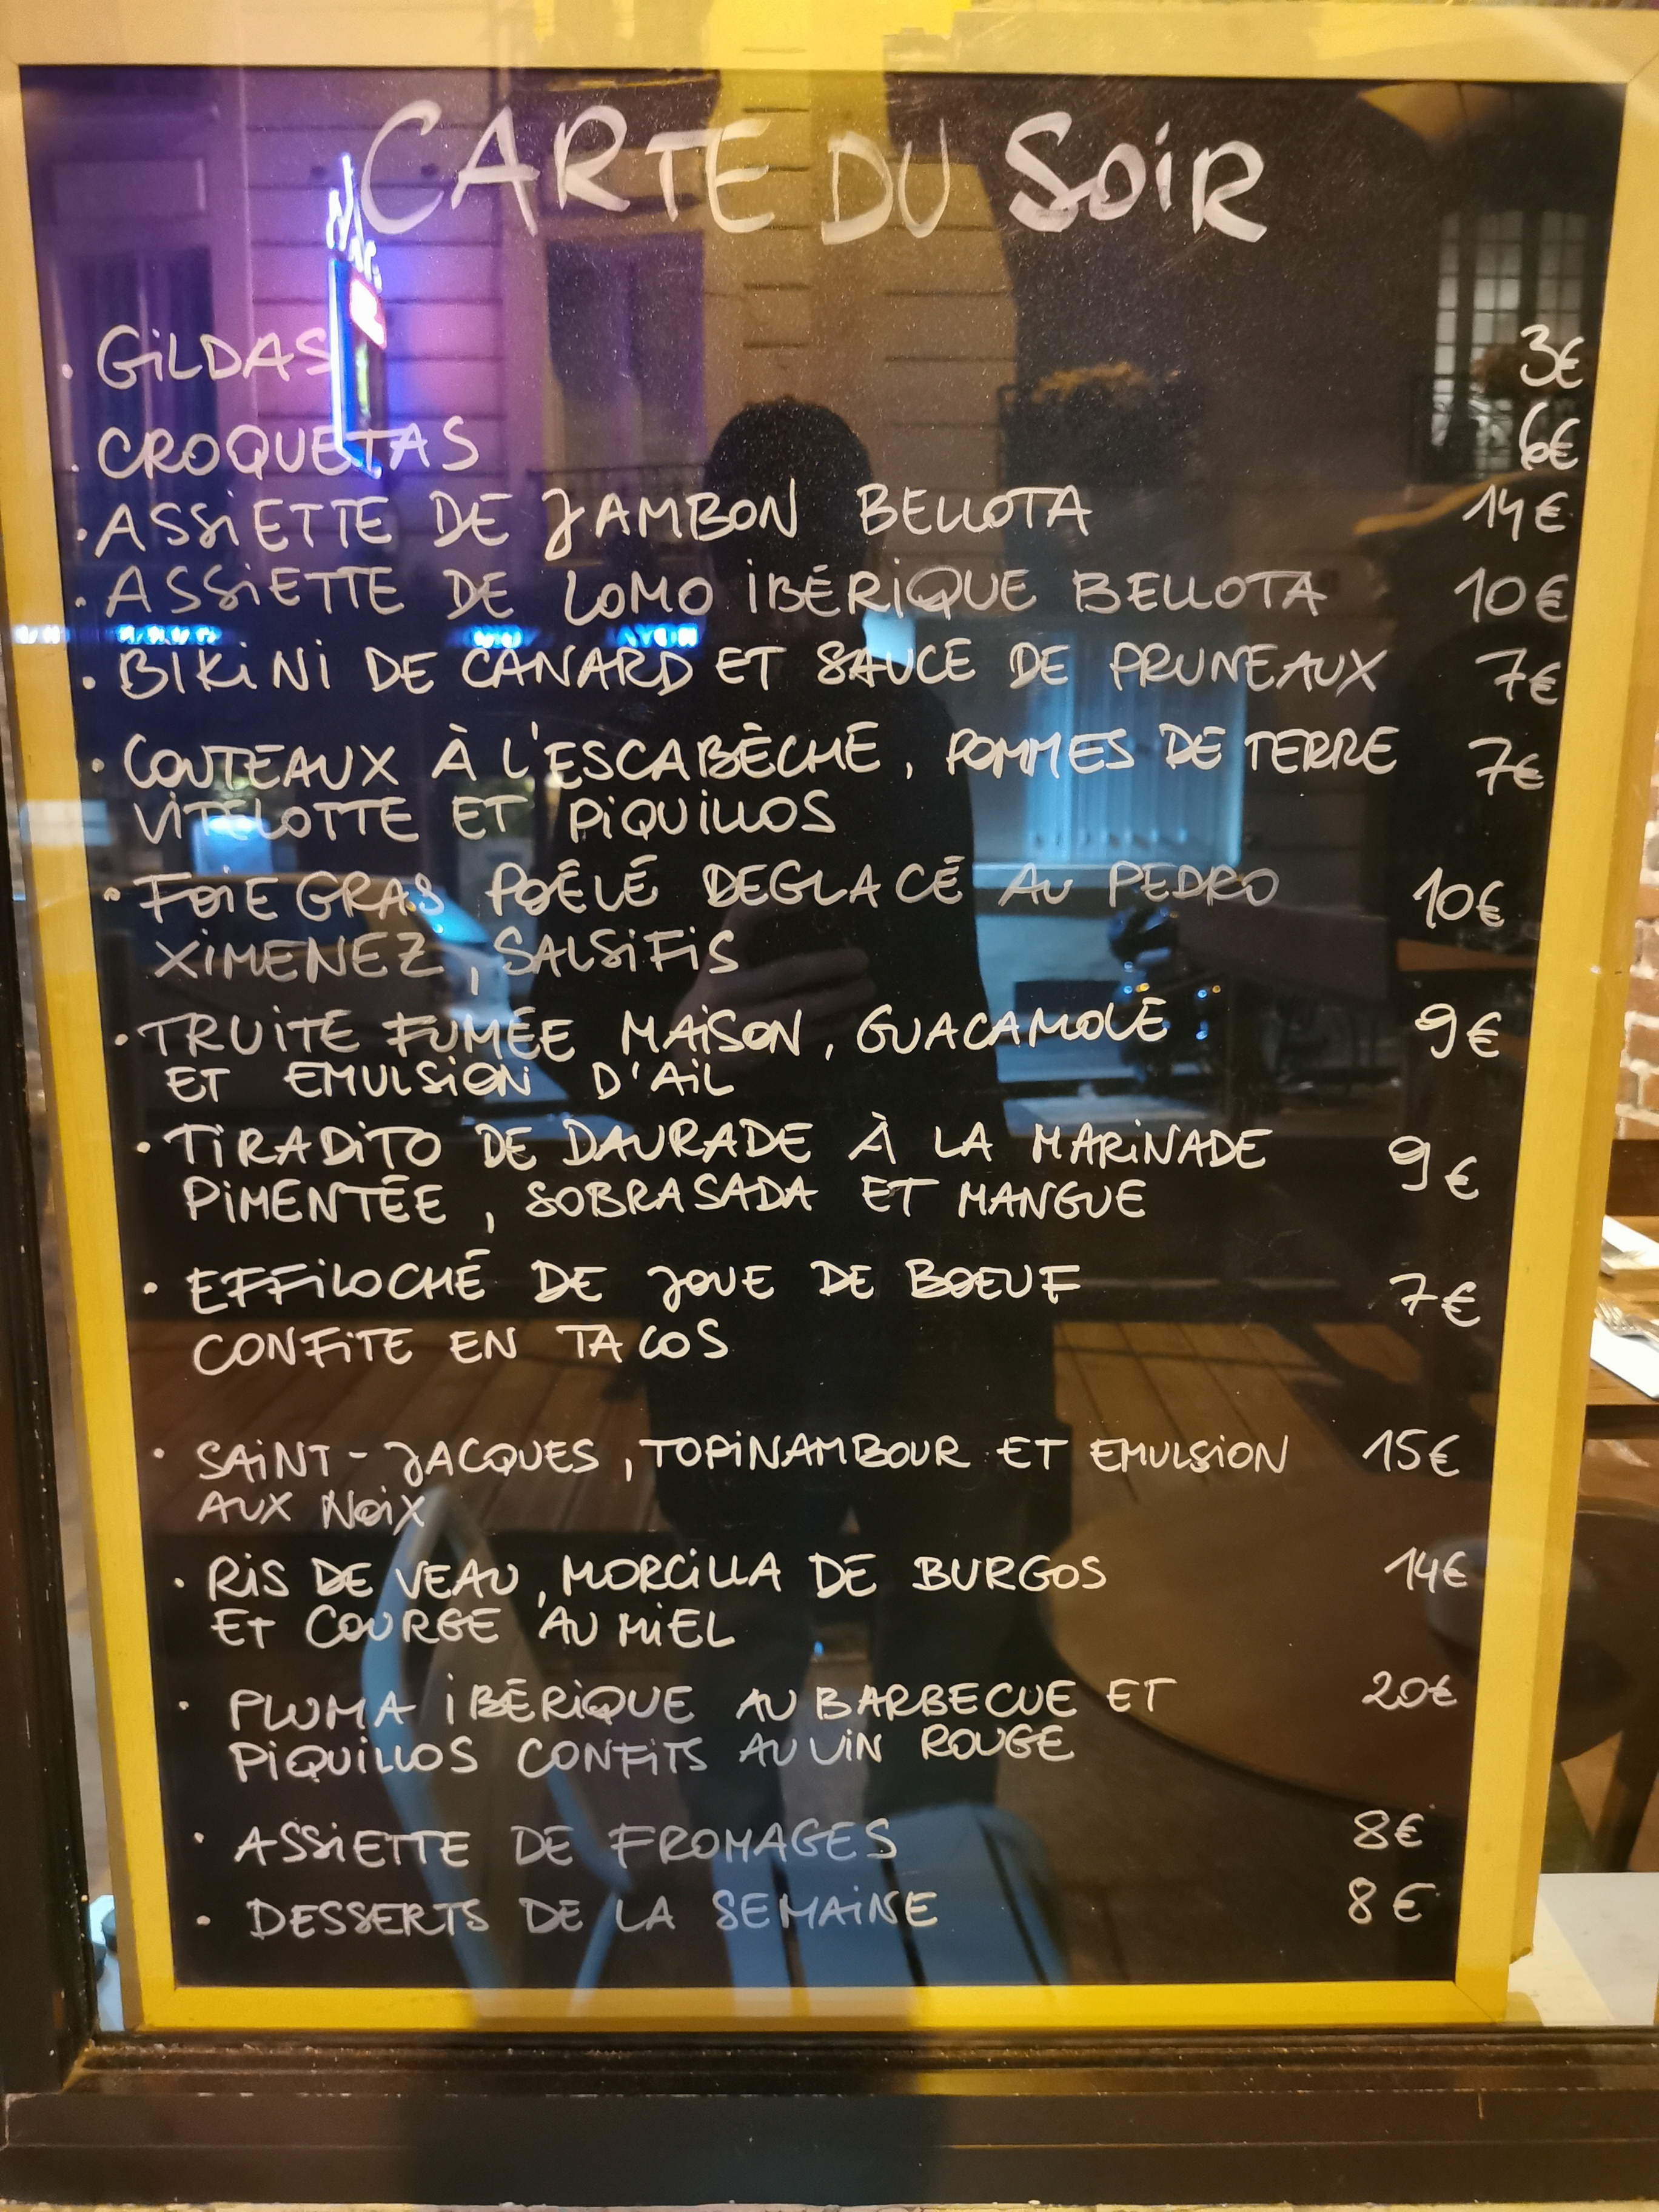 CARTE DU SOIR
. GILDAS 3€
. CROQUETAS 6€
. ASSIETTE DE JAMBON BELLOTA 14€
. ASSIETTE DE LOMO IBÉRIQUE BELLOTA 10€
. BIKINI DE CANARD ET SAUCE DE PRUNEAUX 7€
. COUTEAUX À L'ESCABÈCHE, POMMES DE TERRE 7€
VITELOTTE ET PIQUILLOS
. FOIE GRAS POÊLÉ DEGLACÉ AU PEDRO 10€
XIMENEZ, SALSIFIS
. TRUITE FUMÉE MAISON, GUACAMOLE 9€
ET EMULSION D'AIL
. TIRADITO DE DAURADE À LA MARINADE 9€
PIMENTÉE, SOBRASADA ET MANGUE
. EFFILOCHÉ DE JOUE DE BOEUF 7€
CONFITE EN TACOS
. SAINT-JACQUES, TOPINAMBOUR ET EMULSION 15€
AUX NOIX
. RIS DE VEAU, MORCILLA DE BURGOS 14€
ET COURGE AU MIEL
. PLUMA IBÉRIQUE AU BARBECUE ET 20€
PIQUILLOS CONFITS AU VIN ROUGE
. ASSIETTE DE FROMAGES 8€
. DESSERTS DE LA SEMAINE 8€